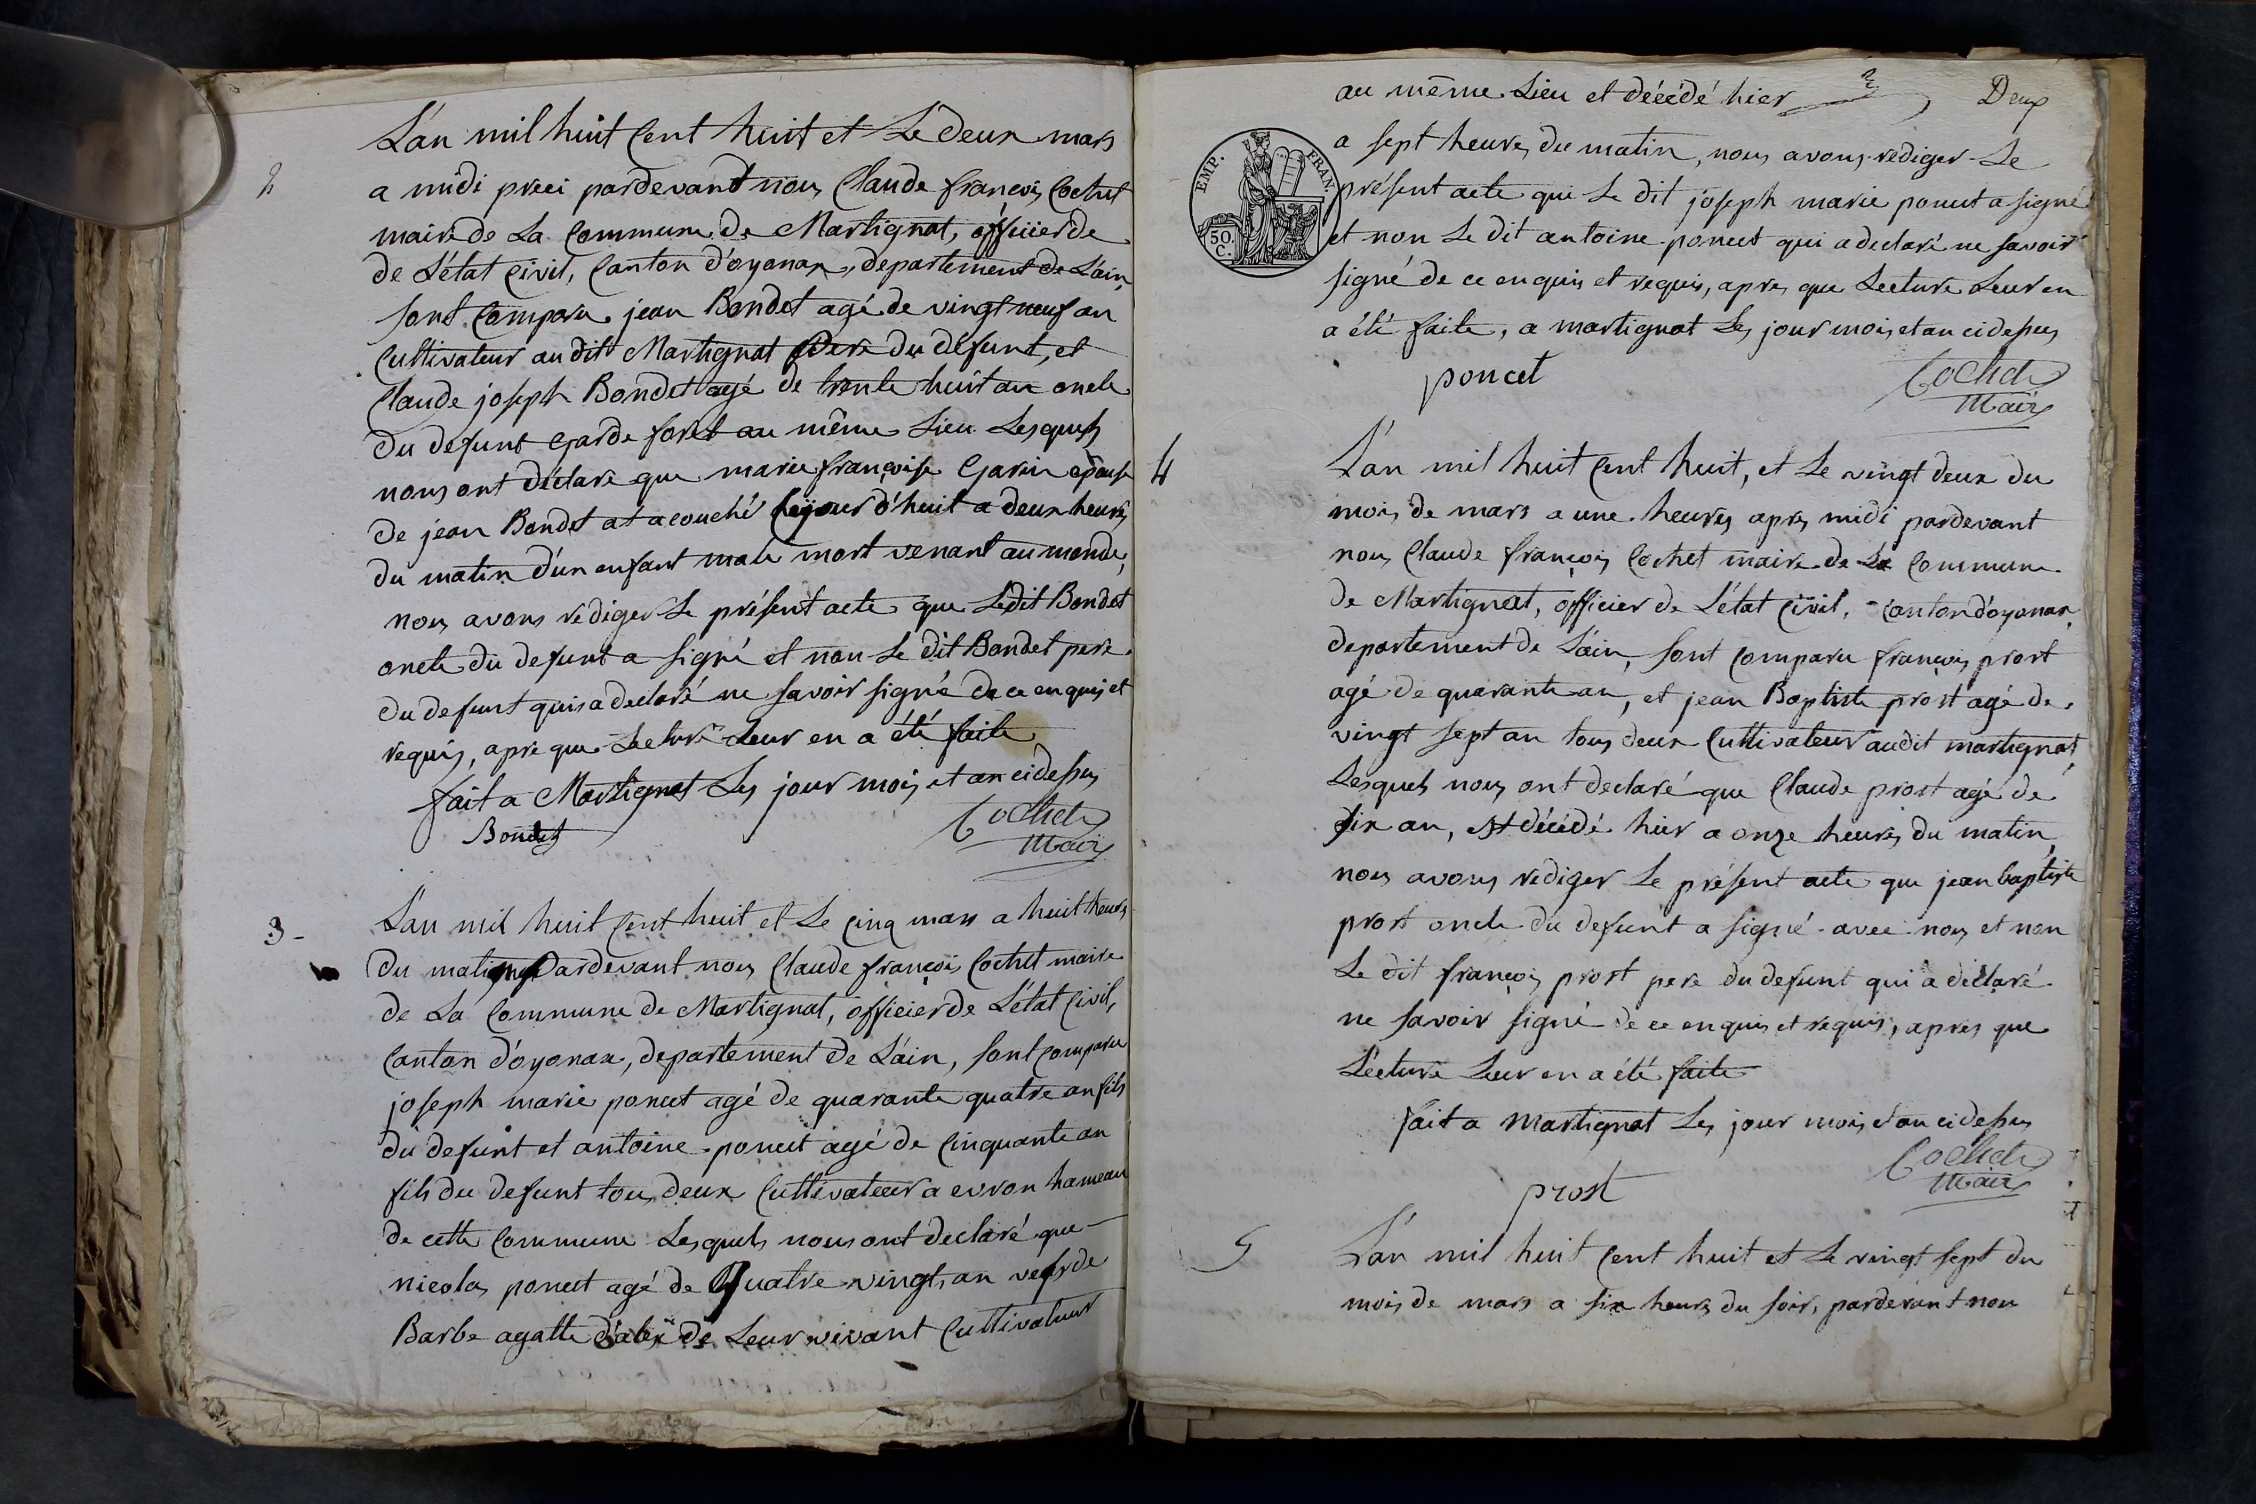 L'an mil huit Cent huit et Le deux mars
2
a midi preci pardevant nous Claude françois Cochet
maire de La Commune de Martignat, officier de
de L'état Civil, Canton d'oyonax, departement de L'ain,
sont Comparu jean Bondet agé de vingt neuf an
Cultivateur au dit Martignat Pere du défunt, et
Claude joseph Bondet agé de trente huit an oncle
du defunt Garde foret au même Lieu Lesquels
nous ont déclaré que marie françoise Garin epouse
de jean Bondet at acouché Cejour d'huit a deux heures
du matin d'un enfant male mort venant au monde,
nous avons rediger Le présent acte que Ledit Bondet
oncle du defunt a signé et non Le dit Bondet pere
du defunt quis a declaré ne savoir signé de ce enquis et
requis, apre que Lecture Leur en a été faite
fait a Martignat Les jour mois et an cidessus
Bondet
Cochet
Maire
3 -
L'an mil huit Cent huit et Le Cinq mars a huit heures
du matin Pardevant nous Claude françois Cochet maire
de La Commune de Martignat, officier de L'état Civil,
Canton d'oyonax, departement de L'ain, sont Comparu
joseph marie poncet agé de quarante quatre an fils
du defunt et antoine poncet agé de Cinquante an
fils du defunt tous deux Cultivateur a evron hameau
de cette Commune Lesquels nous ont declaré que
nicolas poncet agé de Quatre vingts an vefs de
Barbe agatte de Leur vivant Cultivateur
au même Lieu et décédé hier
Deux
a sept heures du matin, nous avons rediger Le
présent acte que Le dit joseph marie poncet a signé
et non Le dit antoine poncet qui a declaré ne savoir
signé de ce enquis et requis, apres que Lecture Leur en
a été faite, a martignat Les jour mois et an cidessus
EMP. FRAN.
50.
C.
poncet
Cochet
Maire
4
L'an mil huit Cent huit, et Le vingt deux du
mois de mars a une heures apres midi pardevant
nous Claude françois Cochet maire de La Commune
de Martignat, officier de L'état Civil, Canton d'oyonax,
departement de L'ain, sont Comparu françois prost
agé de quarante an, et jean Baptiste prost agé de
vingt sept an tous deux Cultivateur audit martignat,
Lesquels nous ont declaré que Claude prost agé de
six an, est décédé hier a onze heures du matin,
nous avons rediger Le présent acte que jean baptiste
prost oncle du defunt a signé avec nous et non
Le dit françois prost pere du defunt qui a déclaré
ne savoir signé de ce enquis et requis, apres que
Lecture Leur en a été faite
fait a Martignat Les jour mois et an cidessus
Cochet
Maire
prost
5
L'an mil huit Cent huit et Le vingt sept du
mois de mars a six heures du soir, pardevant nou